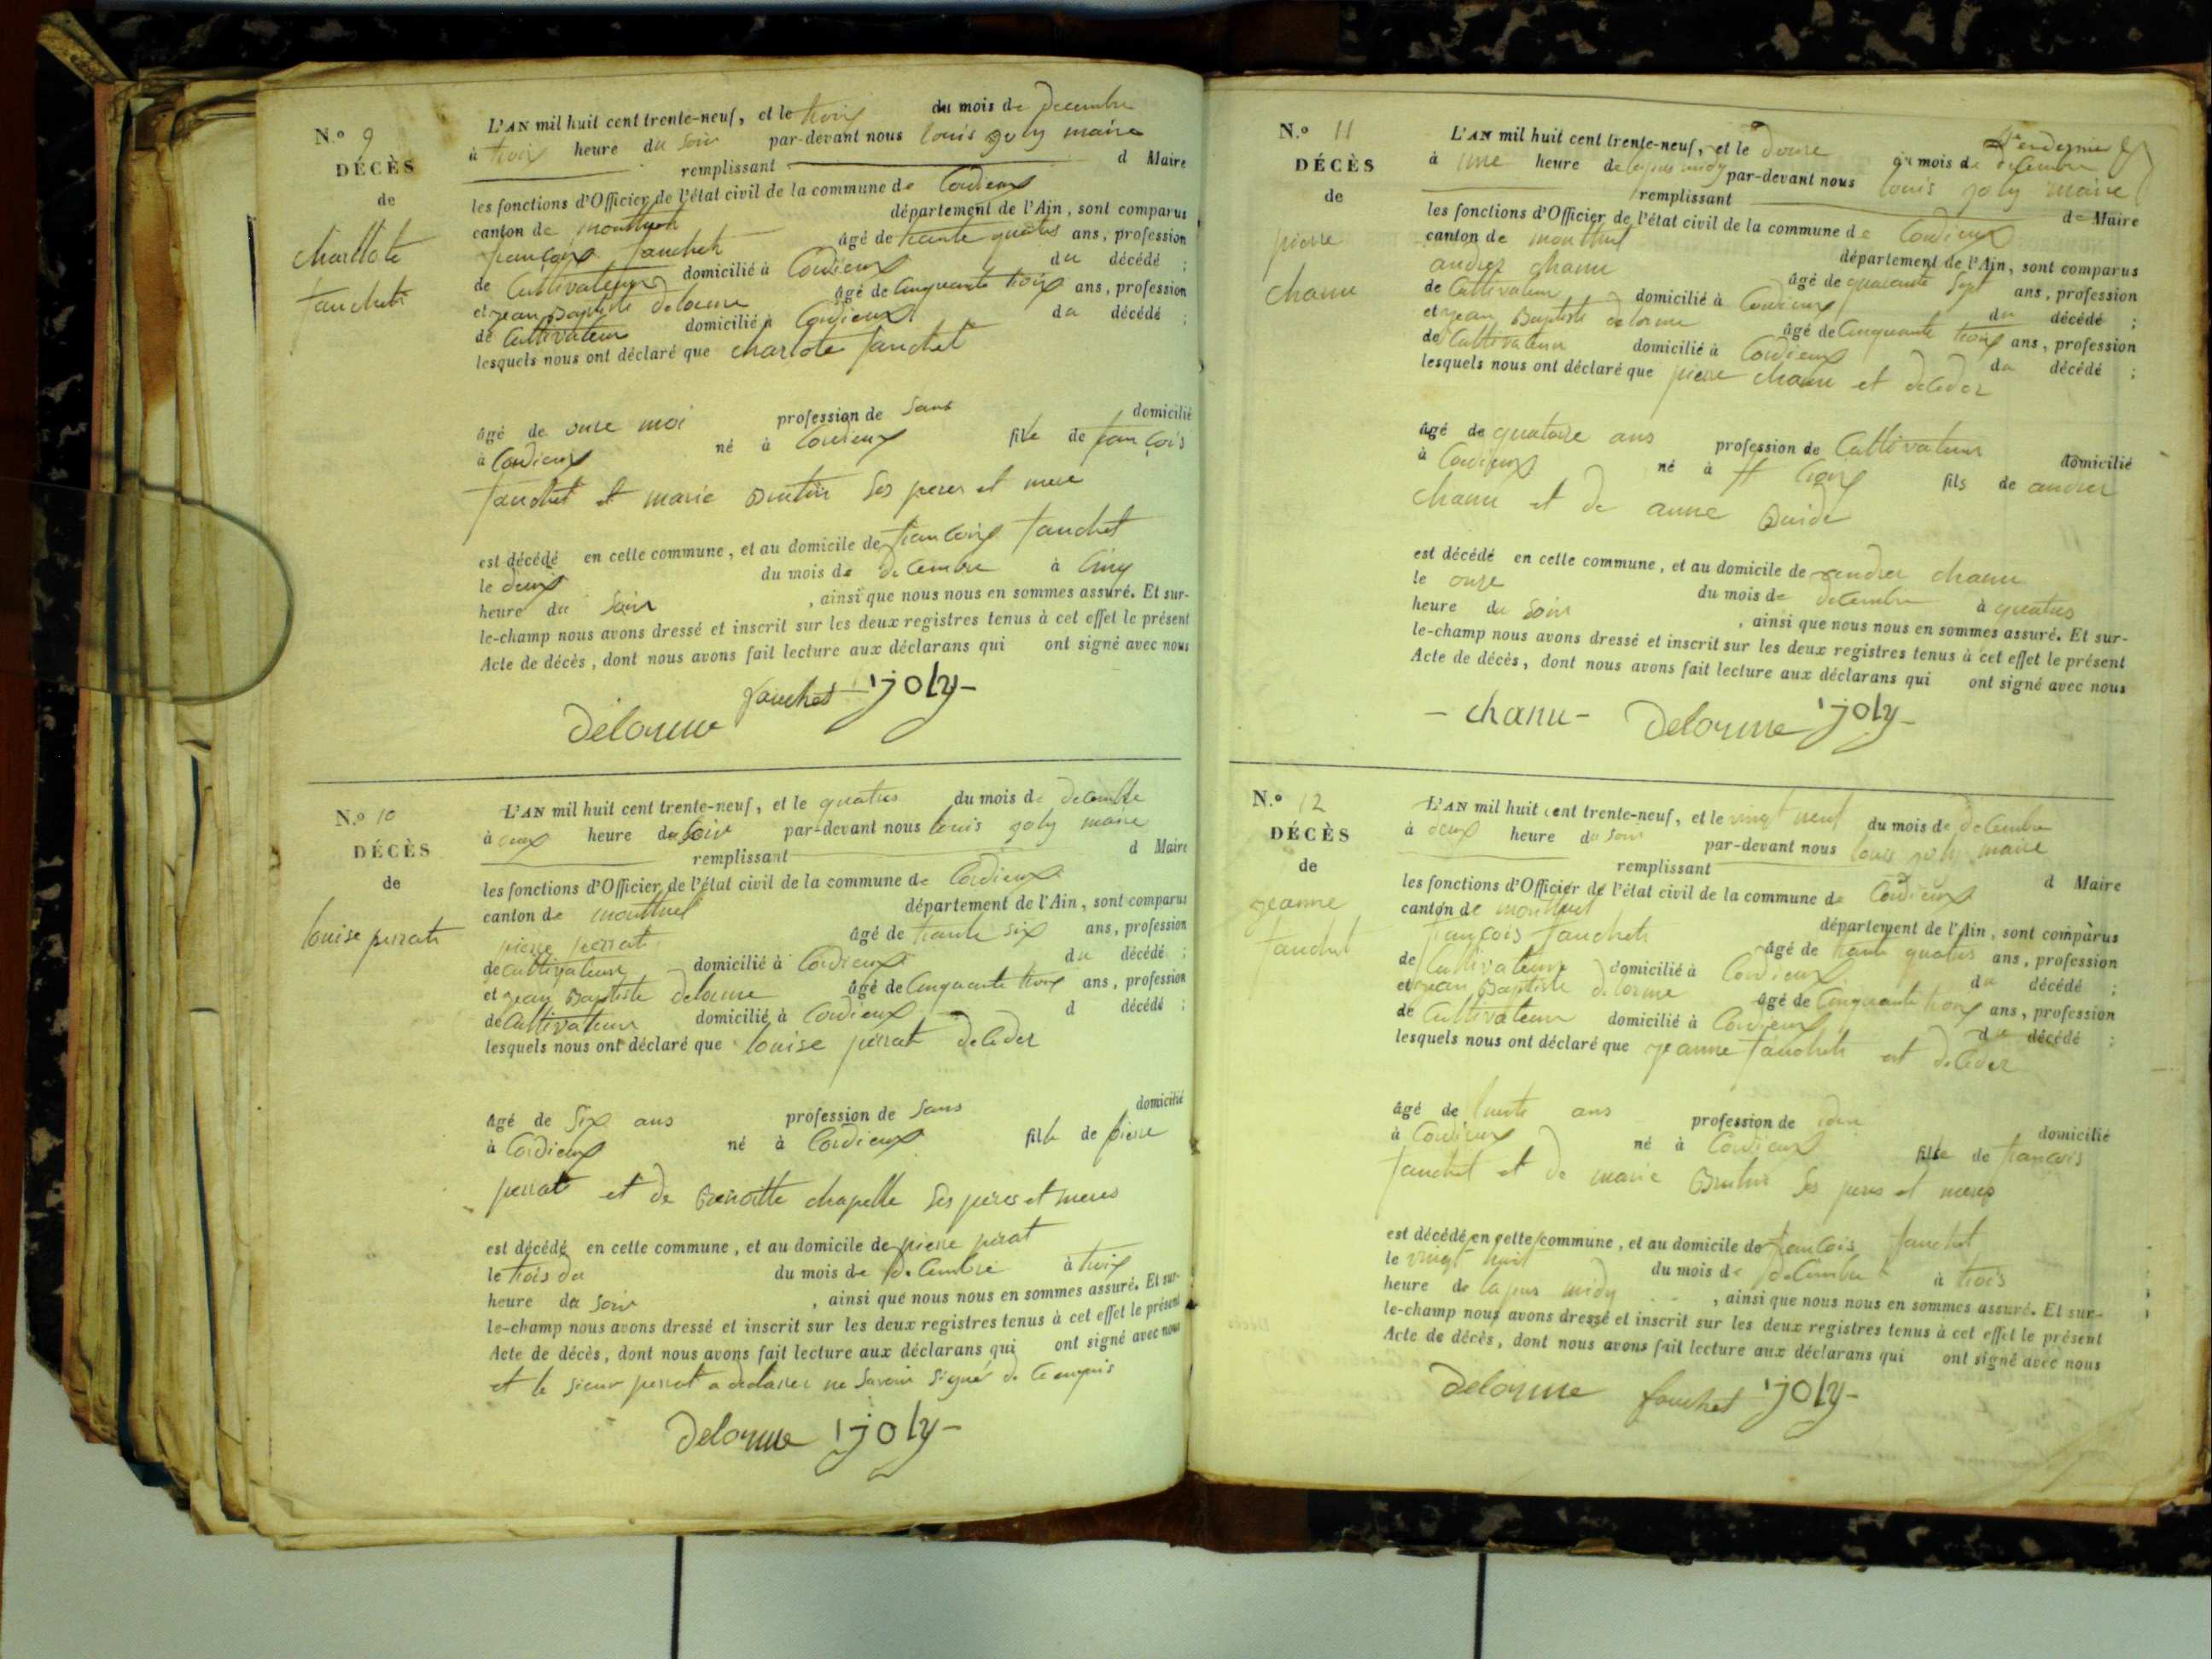 N.º 9
DÉCÈS
de
charllote
fauchet
L'AN mil huit cent trente-neuf, et le trois du mois de decembre
à trois heure du soir par-devant nous louis joly maire
remplissant d Maire
les fonctions d'Officier de l'état civil de la commune de Cordieux
canton de montluel département de l'Ain, sont comparus
françois fauchet âgé de trante quatres ans, profession
de Cultivateur domicilié à Cordieux du décédé ;
et jean Baptiste delorme âgé de Cinquante trois ans, profession
de Cultivateur domicilié à Cordieux du décédé ;
lesquels nous ont déclaré que charlote fauchet
âgé de onze moi profession de sans domicilié
à Cordieux né à Cordieux fille de françois
fauchet et marie ses peres et mere
est décédé en cette commune, et au domicile de françois fauchet
le deux du mois de decembre à Cinq
heure du soir , ainsi que nous nous en sommes assuré. Et sur-
le-champ nous avons dressé et inscrit sur les deux registres tenus à cet effet le présent
Acte de décès, dont nous avons fait lecture aux déclarans qui ont signé avec nous
Delorme fauchet joly
N.º 10
DÉCÈS
de
louise perrat
L'AN mil huit cent trente-neuf, et le quatres du mois de decembre
à heure du soir par-devant nous louis joly maire
remplissant d Maire
les fonctions d'Officier de l'état civil de la commune de Cordieux
canton de montluel département de l'Ain, sont comparus
pierre perrat âgé de trante six ans, profession
de cultivateur domicilié à Cordieux du décédé ;
et jean Baptiste delorme âgé de Cinquante trois ans, profession
de Cultivateur domicilié à Cordieux d décédé ;
lesquels nous ont déclaré que louise perrat deceder
âgé de six ans profession de sans domicilié
à Cordieux né à Cordieux fille de pierre
perrat et de Benoitte chapelle ses peres et meres
est décédé en cette commune, et au domicile de pierre perat
le trois du du mois de decembre à trois
heure du soir , ainsi que nous nous en sommes assuré. Et sur-
le-champ nous avons dressé et inscrit sur les deux registres tenus à cet effet le présent
Acte de décès, dont nous avons fait lecture aux déclarans qui ont signé avec nous
et le sieur perrat a declarer ne savoir signer de ce enquis
Delorme joly
N.º 11
DÉCÈS
de
pierre
chanu
L'AN mil huit cent trente-neuf, et le douze du mois de decembre
à une heure de lapres midy par-devant nous louis joly maire
remplissant de Maire
les fonctions d'Officier de l'état civil de la commune de Cordieux
canton de montluel département de l'Ain, sont comparus
andrer chanu âgé de quarante sept ans, profession
de Cultivateur domicilié à Cordieux du décédé ;
et jean Baptiste delorme âgé de Cinquante trois ans, profession
de Cultivateur domicilié à Cordieux du décédé ;
lesquels nous ont déclaré que pierre chanu et deceder
âgé de quatorze ans profession de Cultivateur domicilié
à Cordieux né à fils de andrer
chanu et de anne
est décédé en cette commune, et au domicile de andrer chanu
le onze du mois de decembre à quatres
heure du soir , ainsi que nous nous en sommes assuré. Et sur-
le-champ nous avons dressé et inscrit sur les deux registres tenus à cet effet le présent
Acte de décès, dont nous avons fait lecture aux déclarans qui ont signé avec nous
- chanu - Delorme joly
N.º 12
DÉCÈS
de
jeanne
fauchet
L'AN mil huit cent trente-neuf, et le vingt neuf du mois de decembre
à deux heure du soir par-devant nous louis joly maire
remplissant d Maire
les fonctions d'Officier de l'état civil de la commune de Cordieux
canton de montluel département de l'Ain, sont comparus
françois fauchet âgé de trante quatres ans, profession
de Cultivateur domicilié à Cordieux du décédé ;
et jean Baptiste delorme âgé de Cinquante trois ans, profession
de Cultivateur domicilié à Cordieux du décédé ;
lesquels nous ont déclaré que jeanne fauchet est deceder
âgé de ans profession de domicilié
à Cordieux né à Cordieux fille de francois
fauchet et de marie ses peres et meres
est décédé en cette commune, et au domicile de francois fauchet
le vingt huit du mois de decembre à trois
heure de lapres midy , ainsi que nous nous en sommes assuré. Et sur-
le-champ nous avons dressé et inscrit sur les deux registres tenus à cet effet le présent
Acte de décès, dont nous avons fait lecture aux déclarans qui ont signé avec nous
Delorme fauchet joly